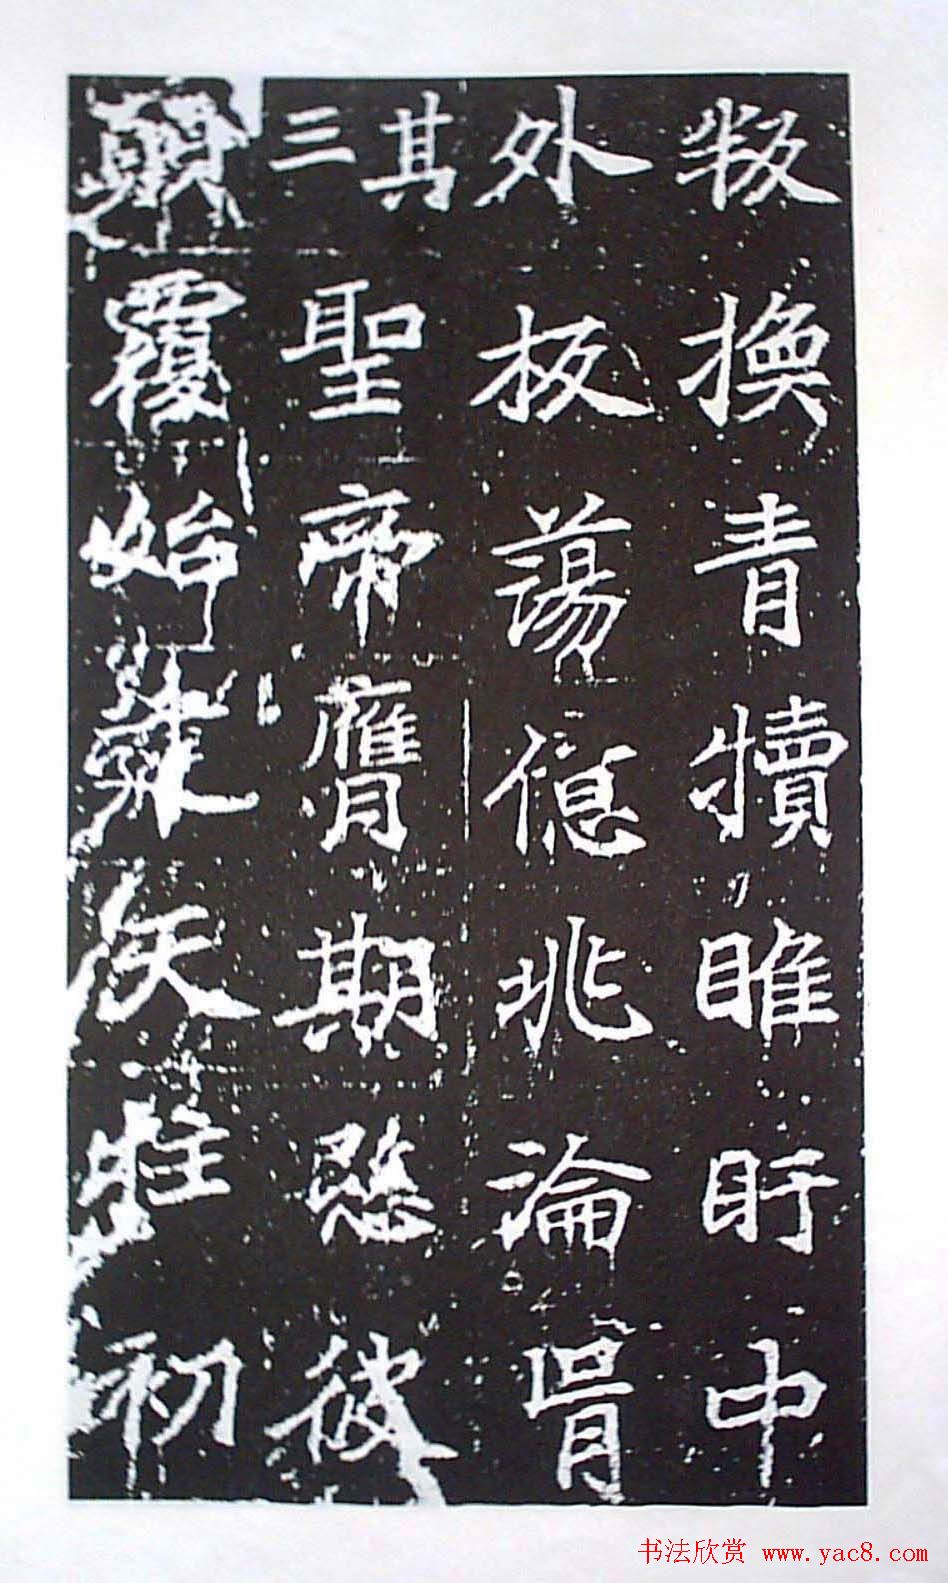 叛換青犢睢盱中
外板蕩億兆淪胥
其三聖帝膺期愍彼
顛覆始牡初
书法欣赏 www.yac8.com